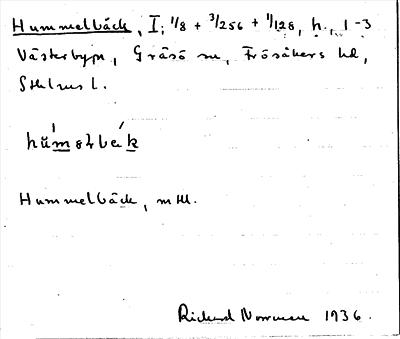 Hummelbäck, I; 1/8 + 3/256 + 1/128, h., 1-3
Västerbyn, Gräsö sn, Frösåkers hd,
Sthlms l.
Hummelbäck, mtl.
Rickard Norrman 1936.